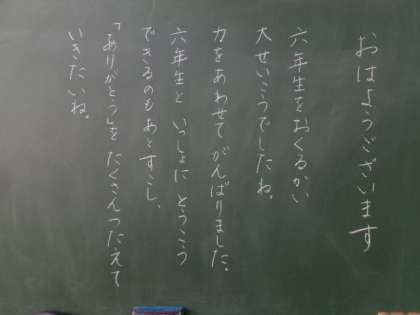 おはようございます
六年生をおくるかい
大せいこうでしたね。
力をあわせて がんばりました。
六年生と いっしょに とうこう
できるのも あとすこし、
「ありがとう」を たくさんつたえて
いきたいね。